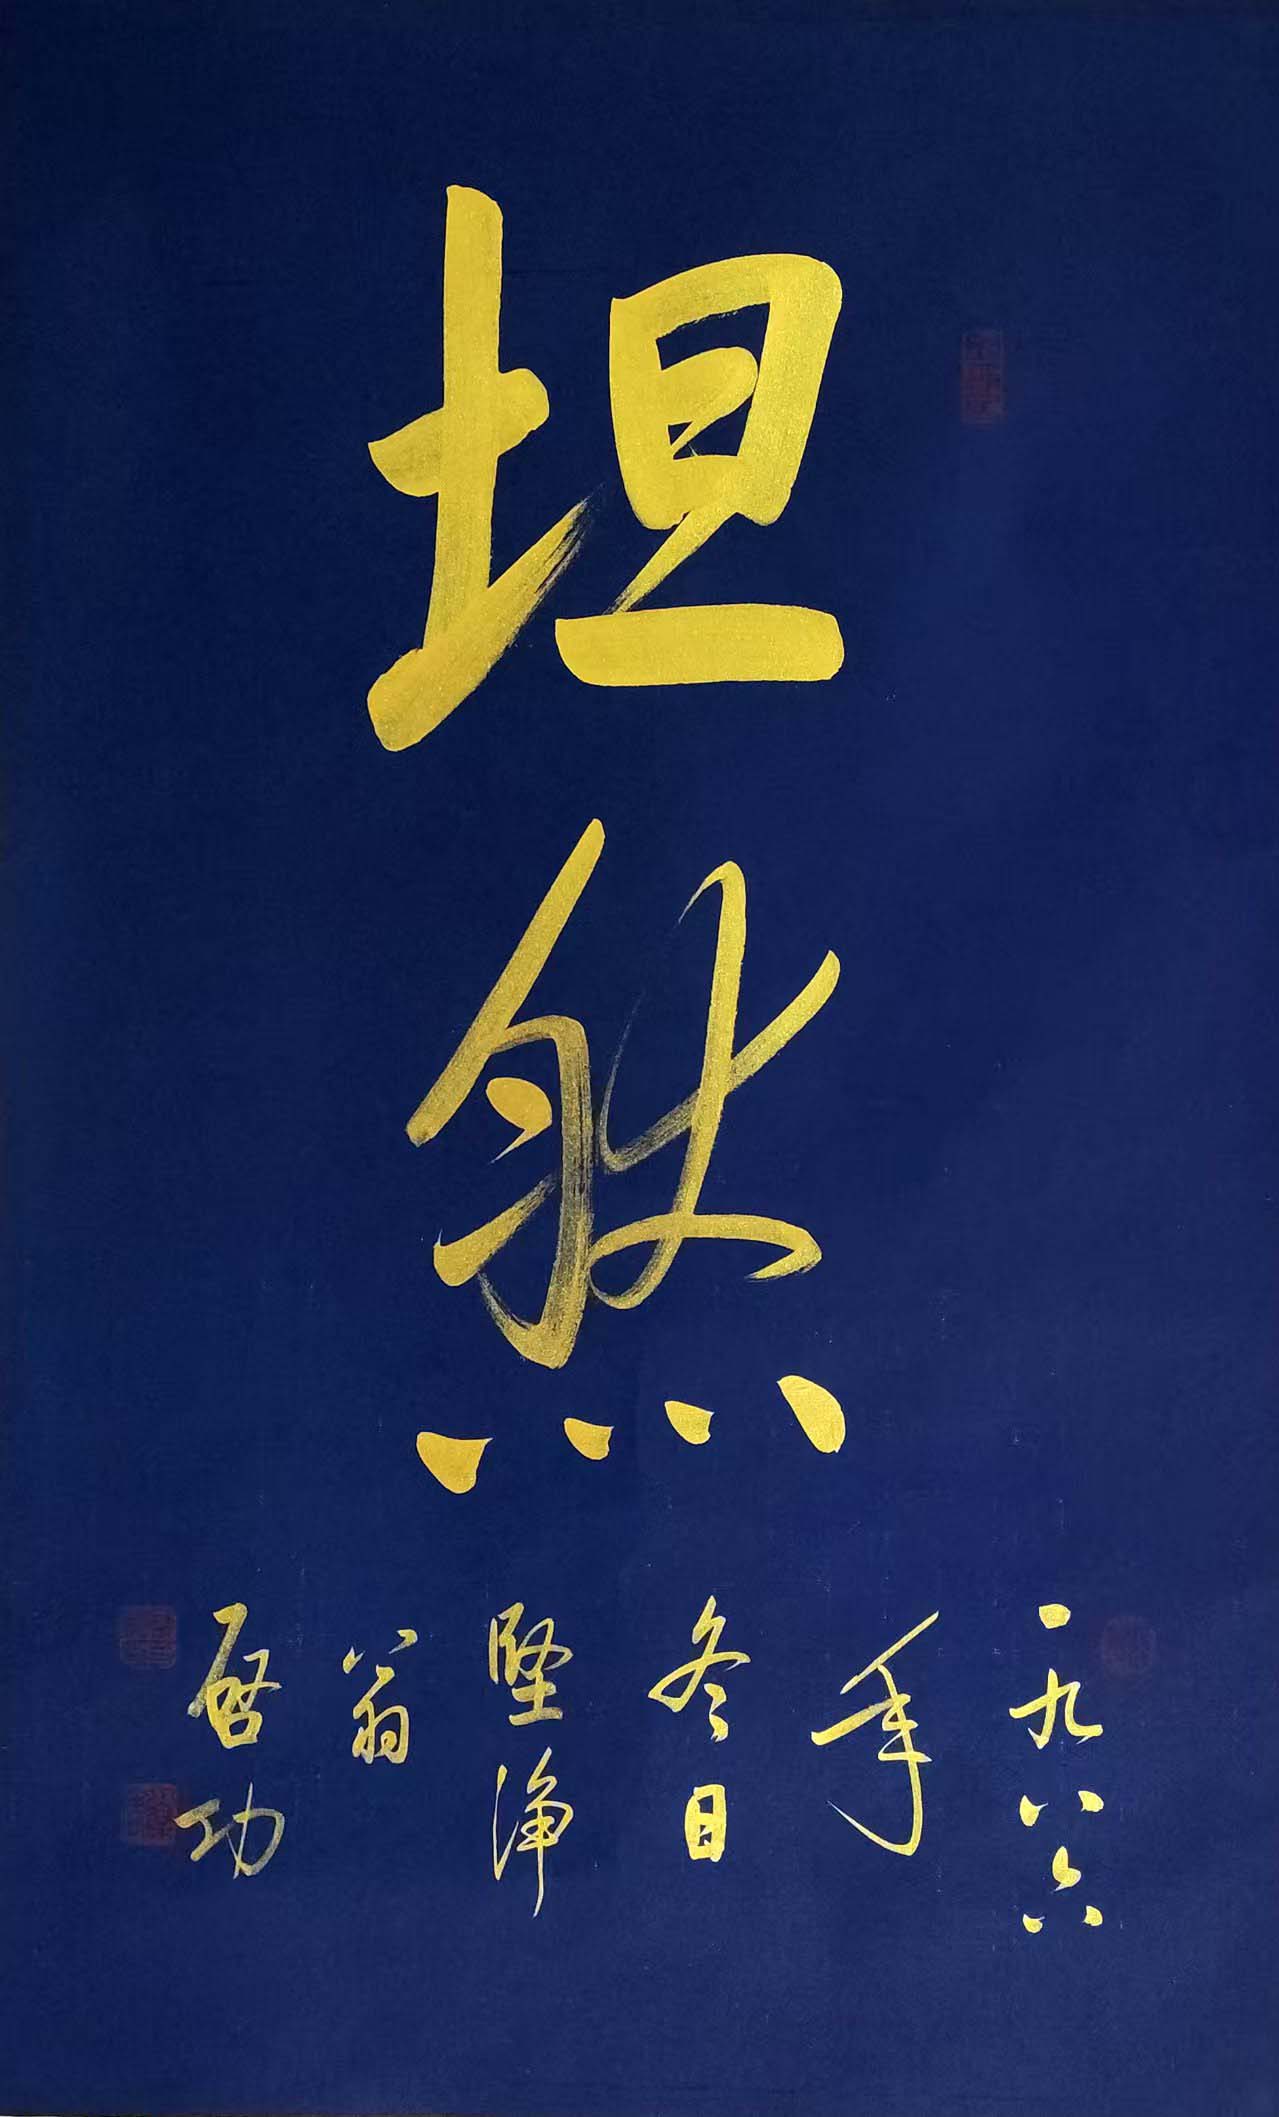 坦然
一九八六
年
冬日
堅净
翁
启功